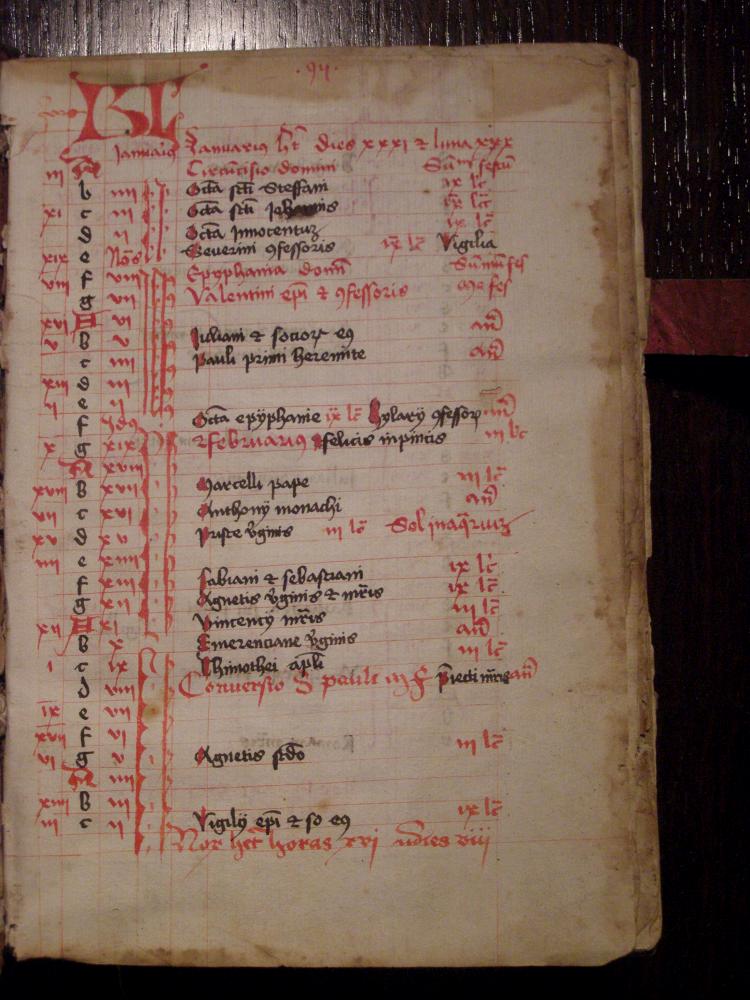 KL
Januarius Januarius ht dies xxxi et luna xxx
iii A Circumcisio domini Sum festum
b iiii Octa sti Steffani ix lc
xi c iii Octa sti Johannis ix lc
d ii Octa Innocentum ix lc
xix e Nonas Severini confessoris ix lc Vigilia
viii f viii Epyphania domi Sumu fes
g vii Valentini epi et confessoris fes
xvi A vi
v b v Juliani et socior eq an
c iiii Pauli primi heremite an
xiii d iii
ii e ii
f Idus Octa epyphanie ix lc hylary confessor an
x g xix februarius felicis in pincis iii lc
A xviii
xviii b xvii Marcelli pape iii lc
vii c xvi Anthony monachi an
xv d xv Prisce virginis iii lc Sol in aquario
iiii e xiiii
f xiii fabiani et sebastiani ix lc
g xii Agnetis virginis et mris ix lc
xii A xi Vincenty mris iii lc
b x Emerenciane virginis an
i c ix Thimothei apli iii lc
d viii Conversio S pauli an
ix e vii
xvii f vi
vi g v Agnetis scdo iii lc
A iiii
xiiii b iii
iii c ii Vigily epi et so eq ix lc
Nox het horas xvi dies viii